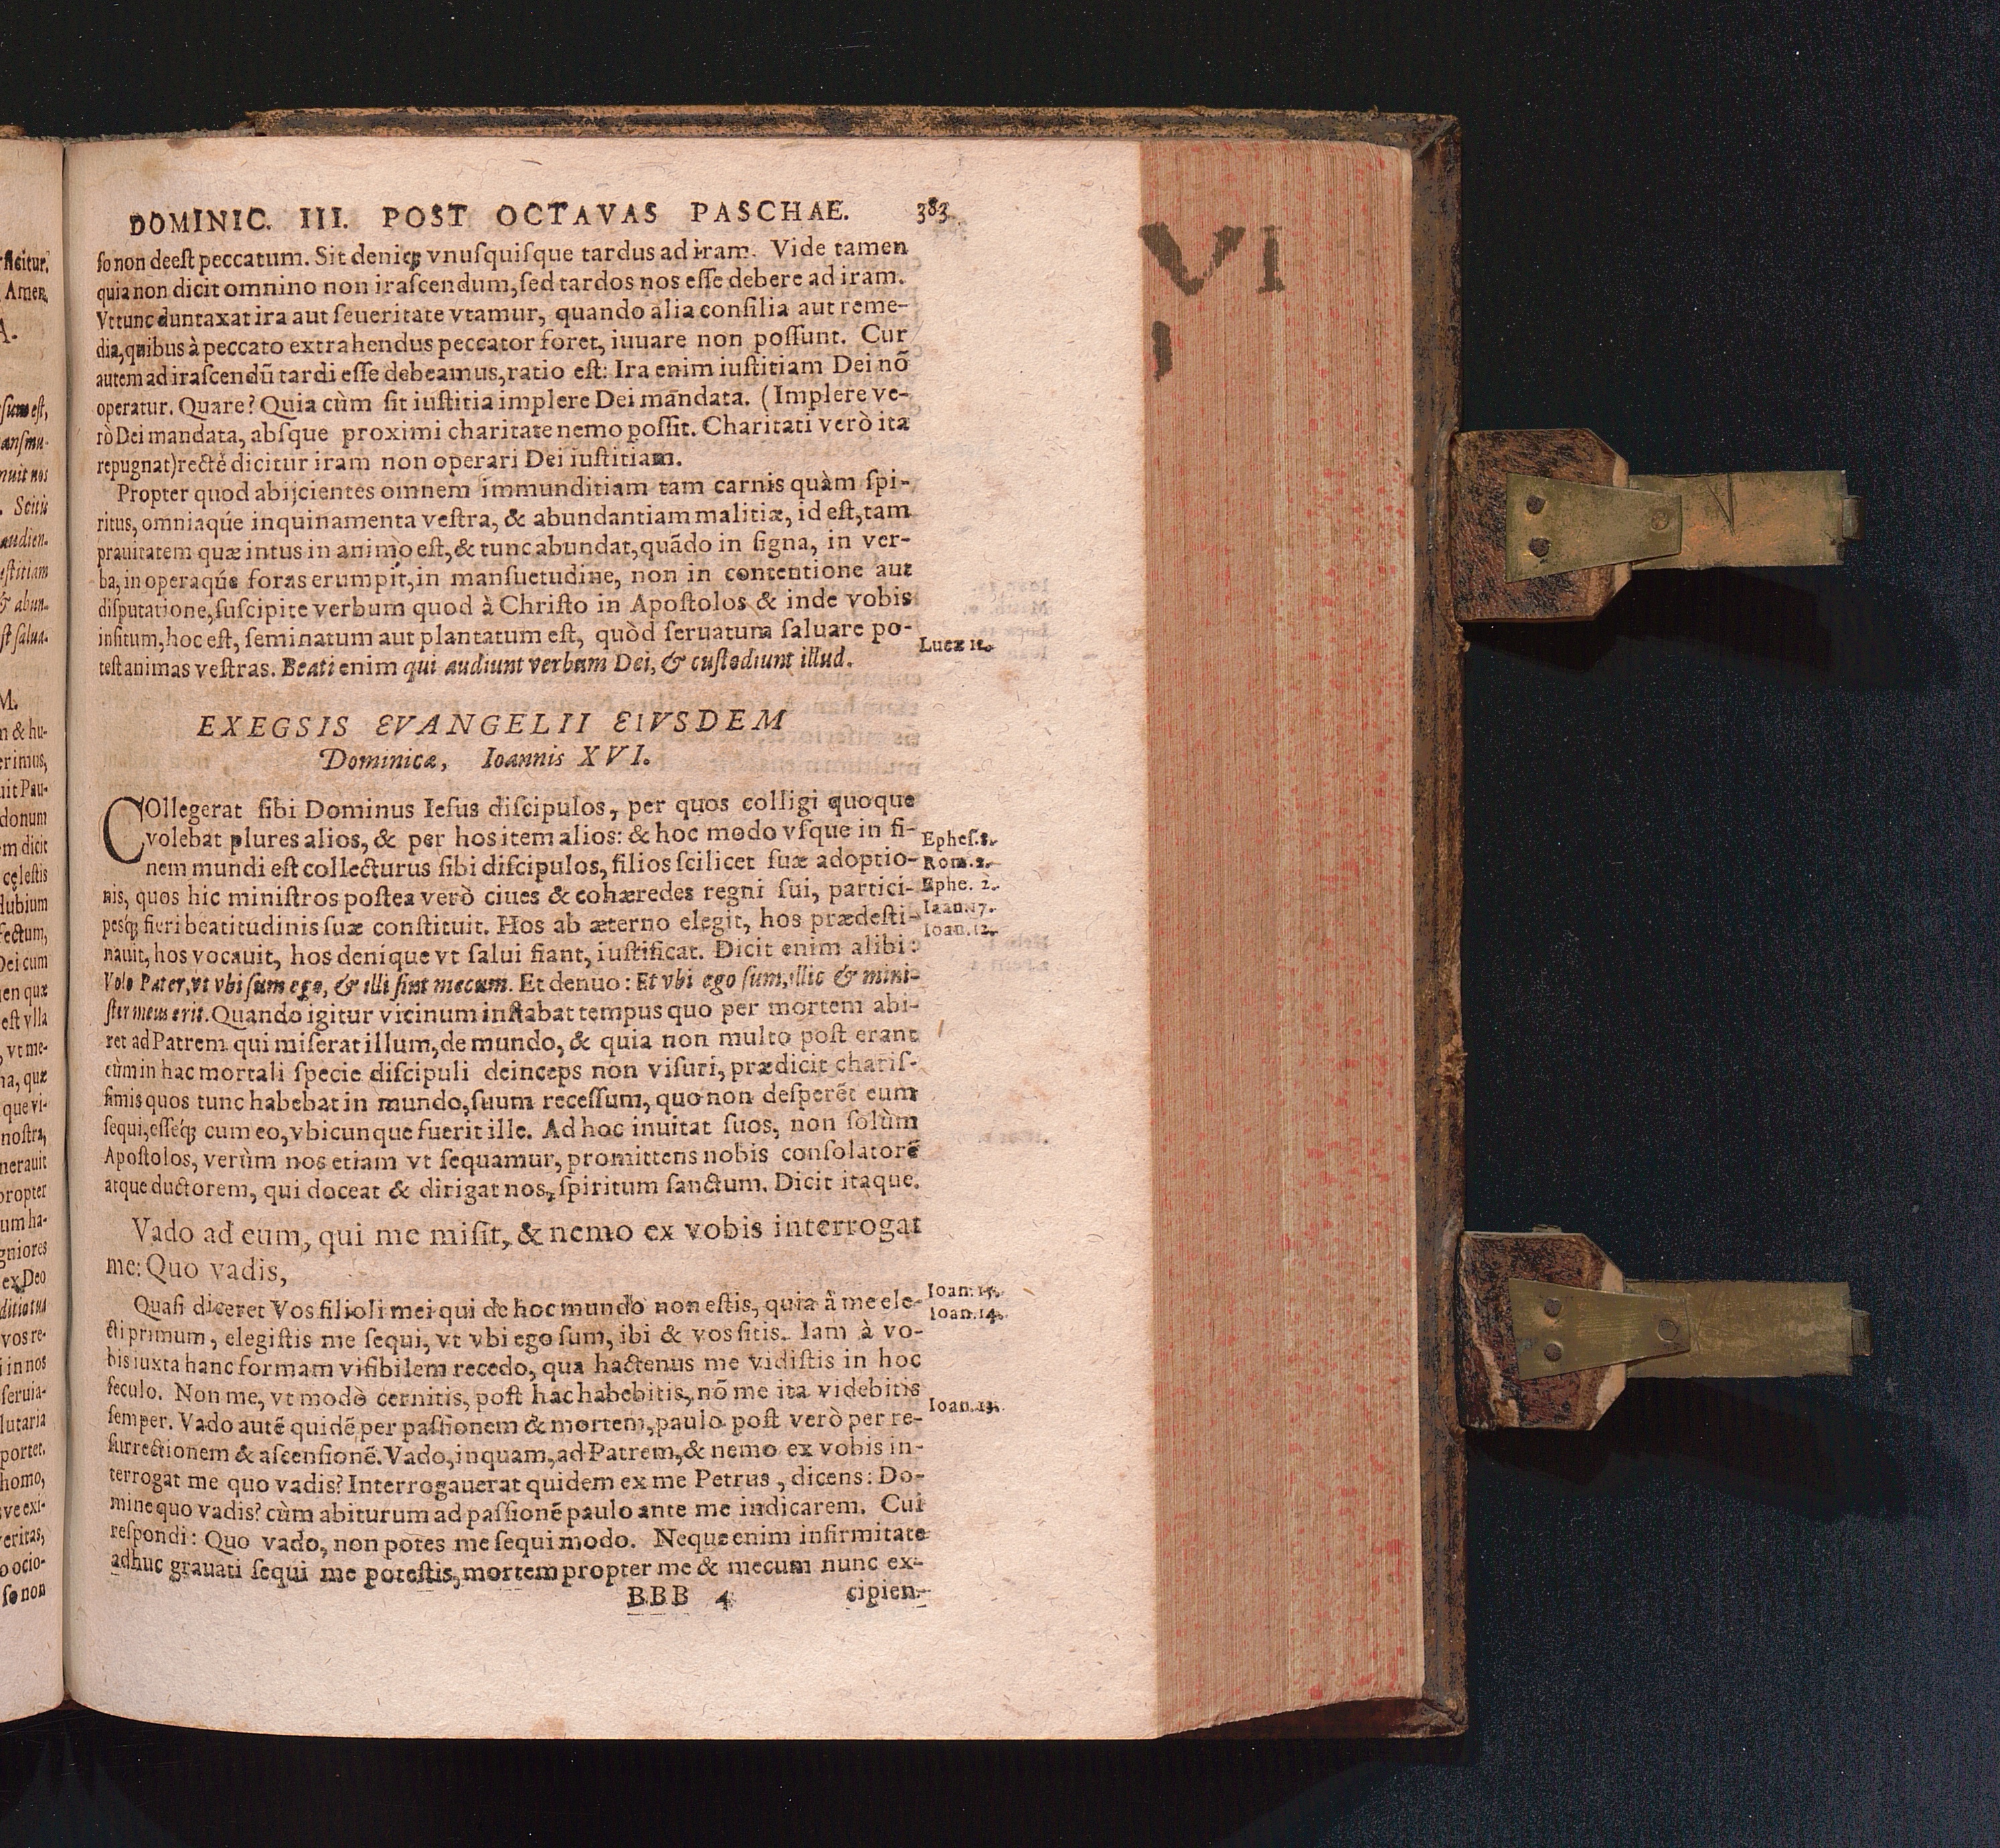 DOMINIC. III. POST OCTAVAS PASCHAE. 383
ſo non deeſt peccatum. Sit deniq; vnuſquiſque tardus ad iram. Vide tamen
quia non dicit omnino non iraſcendum, ſed tardos nos eſſe debere ad iram.
Vt tunc duntaxat ira aut ſeueritate vtamur, quando alia conſilia aut reme-
dia, quibus à peccato extrahendus peccator foret, iuuare non poſſunt. Cur
autem ad iraſcendū tardi eſſe debeamus, ratio eſt: Ira enim iuſtitiam Dei nō
operatur. Quare? Quia cùm ſit iuſtitia implere Dei mandata. (Implere ve-
rò Dei mandata, abſque proximi charitate nemo poſſit. Charitati verò ita
repugnat) rectè dicitur iram non operari Dei iuſtitiam.
Propter quod abijcientes omnem immunditiam tam carnis quàm ſpi-
ritus, omniaqúe inquinamenta veſtra, & abundantiam malitiæ, id eſt, tam
prauitatem quæ intus in animo eſt, & tunc abundat, quādo in ſigna, in ver-
ba, in operaqúe foras erumpit, in manſuetudine, non in contentione aut
diſputatione, ſuſcipite verbum quod à Chriſto in Apoſtolos & inde vobis
inſitum, hoc eſt, ſeminatum aut plantatum eſt, quòd ſeruatum ſaluare po-
teſt animas veſtras. Beati enim qui audiunt verbum Dei, & cuſtodiunt illud.
Lucæ 11.
EXEGSIS EVANGELII EIVSDEM
Dominicæ, Ioannis XVI.
COllegerat ſibi Dominus Ieſus diſcipulos, per quos colligi quoque
volebat plures alios, & per hos item alios: & hoc modo vſque in fi-
nem mundi eſt collecturus ſibi diſcipulos, filios ſcilicet ſuæ adoptio-
nis, quos hic miniſtros poſtea verò ciues & cohæredes regni ſui, partici-
peśq; fieri beatitudinis ſuæ conſtituit. Hos ab æterno elegit, hos prædeſti-
nauit, hos vocauit, hos denique vt ſalui fiant, iuſtificat. Dicit enim alibi:
Volo Pater, vt vbi ſum ego, & illi ſint mecum. Et denuo: Et vbi ego ſum, illic & mini-
ſter meus erit. Quando igitur vicinum inſtabat tempus quo per mortem abi-
ret ad Patrem qui miſerat illum, de mundo, & quia non multo poſt erant
eum in hac mortali ſpecie diſcipuli deinceps non viſuri, prædicit chariſ-
ſimis quos tunc habebat in mundo, ſuum receſſum, quo non deſperēt eum
ſequi, eſſeq́; cum eo, vbicunque fuerit ille. Ad hoc inuitat ſuos, non ſolùm
Apoſtolos, verùm nos etiam vt ſequamur, promittens nobis conſolatorē
atque ductorem, qui doceat & dirigat nos, ſpiritum ſanctum. Dicit itaque.
Epheſ.
Rom.
Ephe.
Ioan. 17.
Ioan. 12.
Vado ad eum, qui me miſit, & nemo ex vobis interrogat
me: Quo vadis,
Quaſi diceret Vos filioli mei qui de hoc mundo non eſtis, quia à me ele-
cti primum, elegiſtis me ſequi, vt vbi ego ſum, ibi & vos ſitis. Iam à vo-
bis iuxta hanc formam viſibilem recedo, qua hactenus me vidiſtis in hoc
ſeculo. Non me, vt modò cernitis, poſt hac habebitis, nō me ita videbitis
ſemper. Vado autē quidē per paſſionem & mortem, paulo poſt verò per re-
ſurrectionem & aſcenſionē. Vado, inquam, ad Patrem, & nemo ex vobis in-
terrogat me quo vadis? Interrogauerat quidem ex me Petrus, dicens: Do-
mine quo vadis? cùm abiturum ad paſſionē paulo ante me indicarem. Cui
reſpondi: Quo vado, non potes me ſequi modo. Neque enim infirmitate
adhuc grauati ſequi me poteſtis, mortem propter me & mecum nunc ex-
Ioan. 15.
Ioan. 14.
Ioan. 13.
BBB 4 cipien-
VI